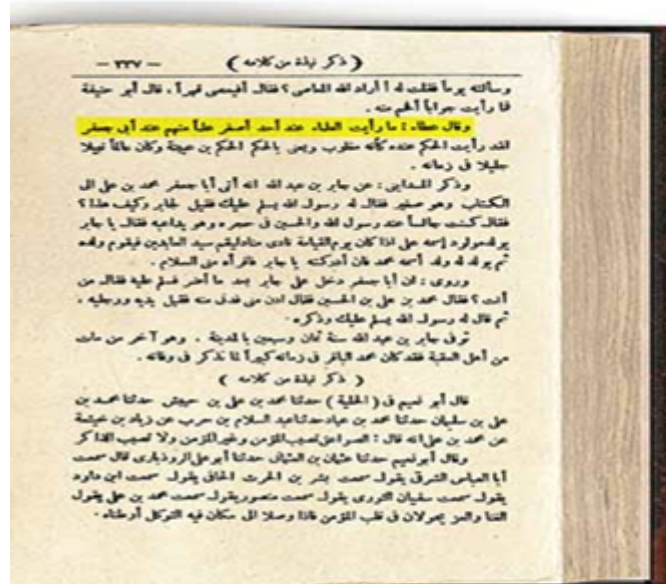 ( ذكر نبذة من كلامه ) — ٣٣٧ —
وسألته يوماً فقلت له أأراد الله المعاصي؟ فقال أفيعصى قهراً ، قال أبو حنيفة
فما رأيت جواباً أفحم منه .
وقال عطاء : ما رأيت العلماء عند أحد أصغر علماً منهم عند أبي جعفر
لقد رأيت الحكم عنده كأنه مغلوب ويعني بالحكم الحكم بن عيينة وكان عالماً نبيلا
جليلا في زمانه .
وذكر المدايني : عن جابر بن عبد الله انه أتى أبا جعفر محمد بن علي الى
الكتاب وهو صغير فقال له رسول الله يسلم عليك فقيل لجابر وكيف هذا ؟
فقال كنت جالساً عند رسول الله والحسين في حجره وهو يداعبه فقال يا جابر
يولد مولود إسمه علي اذا كان يوم القيامة نادى مناد ليقم سيد العابدين فيقوم ولده
ثم يولد له ولد أسمه محمد فان أدركته يا جابر فاقرأه مني السلام .
وروى : ان أبا جعفر دخل على جابر بعد ما أضر فسلم عليه فقال من
أنت ؟ فقال محمد بن علي بن الحسين فقال ادن مني فدنى منه فقبل يديه ورجليه .
ثم قال له رسول الله يسلم عليك وذكره .
توفى جابر بن عبد الله سنة ثمان وسبعين بالمدينة . وهو آخر من مات
من أهل العقبة فقد كان محمد الباقر في زمانه كبيراً لما نذكر في وفاته .
( ذكر نبذة من كلامه )
قال أبو نعيم في ( الحلية ) حدثنا محمد بن علي بن حبيش حدثنا محمد بن
علي بن سفيان حدثنا محمد بن عباد حدثنا عبد السلام بن حرب عن زياد بن خيثمة
عن محمد بن علي انه قال : الصواعق تصيب المؤمن وغير المؤمن ولا تصيب الذاكر
وقال أبو نعيم حدثنا عثمان بن العثماني حدثنا أبو علي الروذباري قال سمعت
أبا العباس الشرقي يقول سمعت بشر بن الحرث الحافي يقول سمعت ابن داود
يقول سمعت سفيان الثوري يقول سمعت منصور يقول سمعت محمد بن علي يقول
الغنا والعز يجولان في قلب المؤمن فاذا وصلا الى مكان فيه التوكل أوطناه .